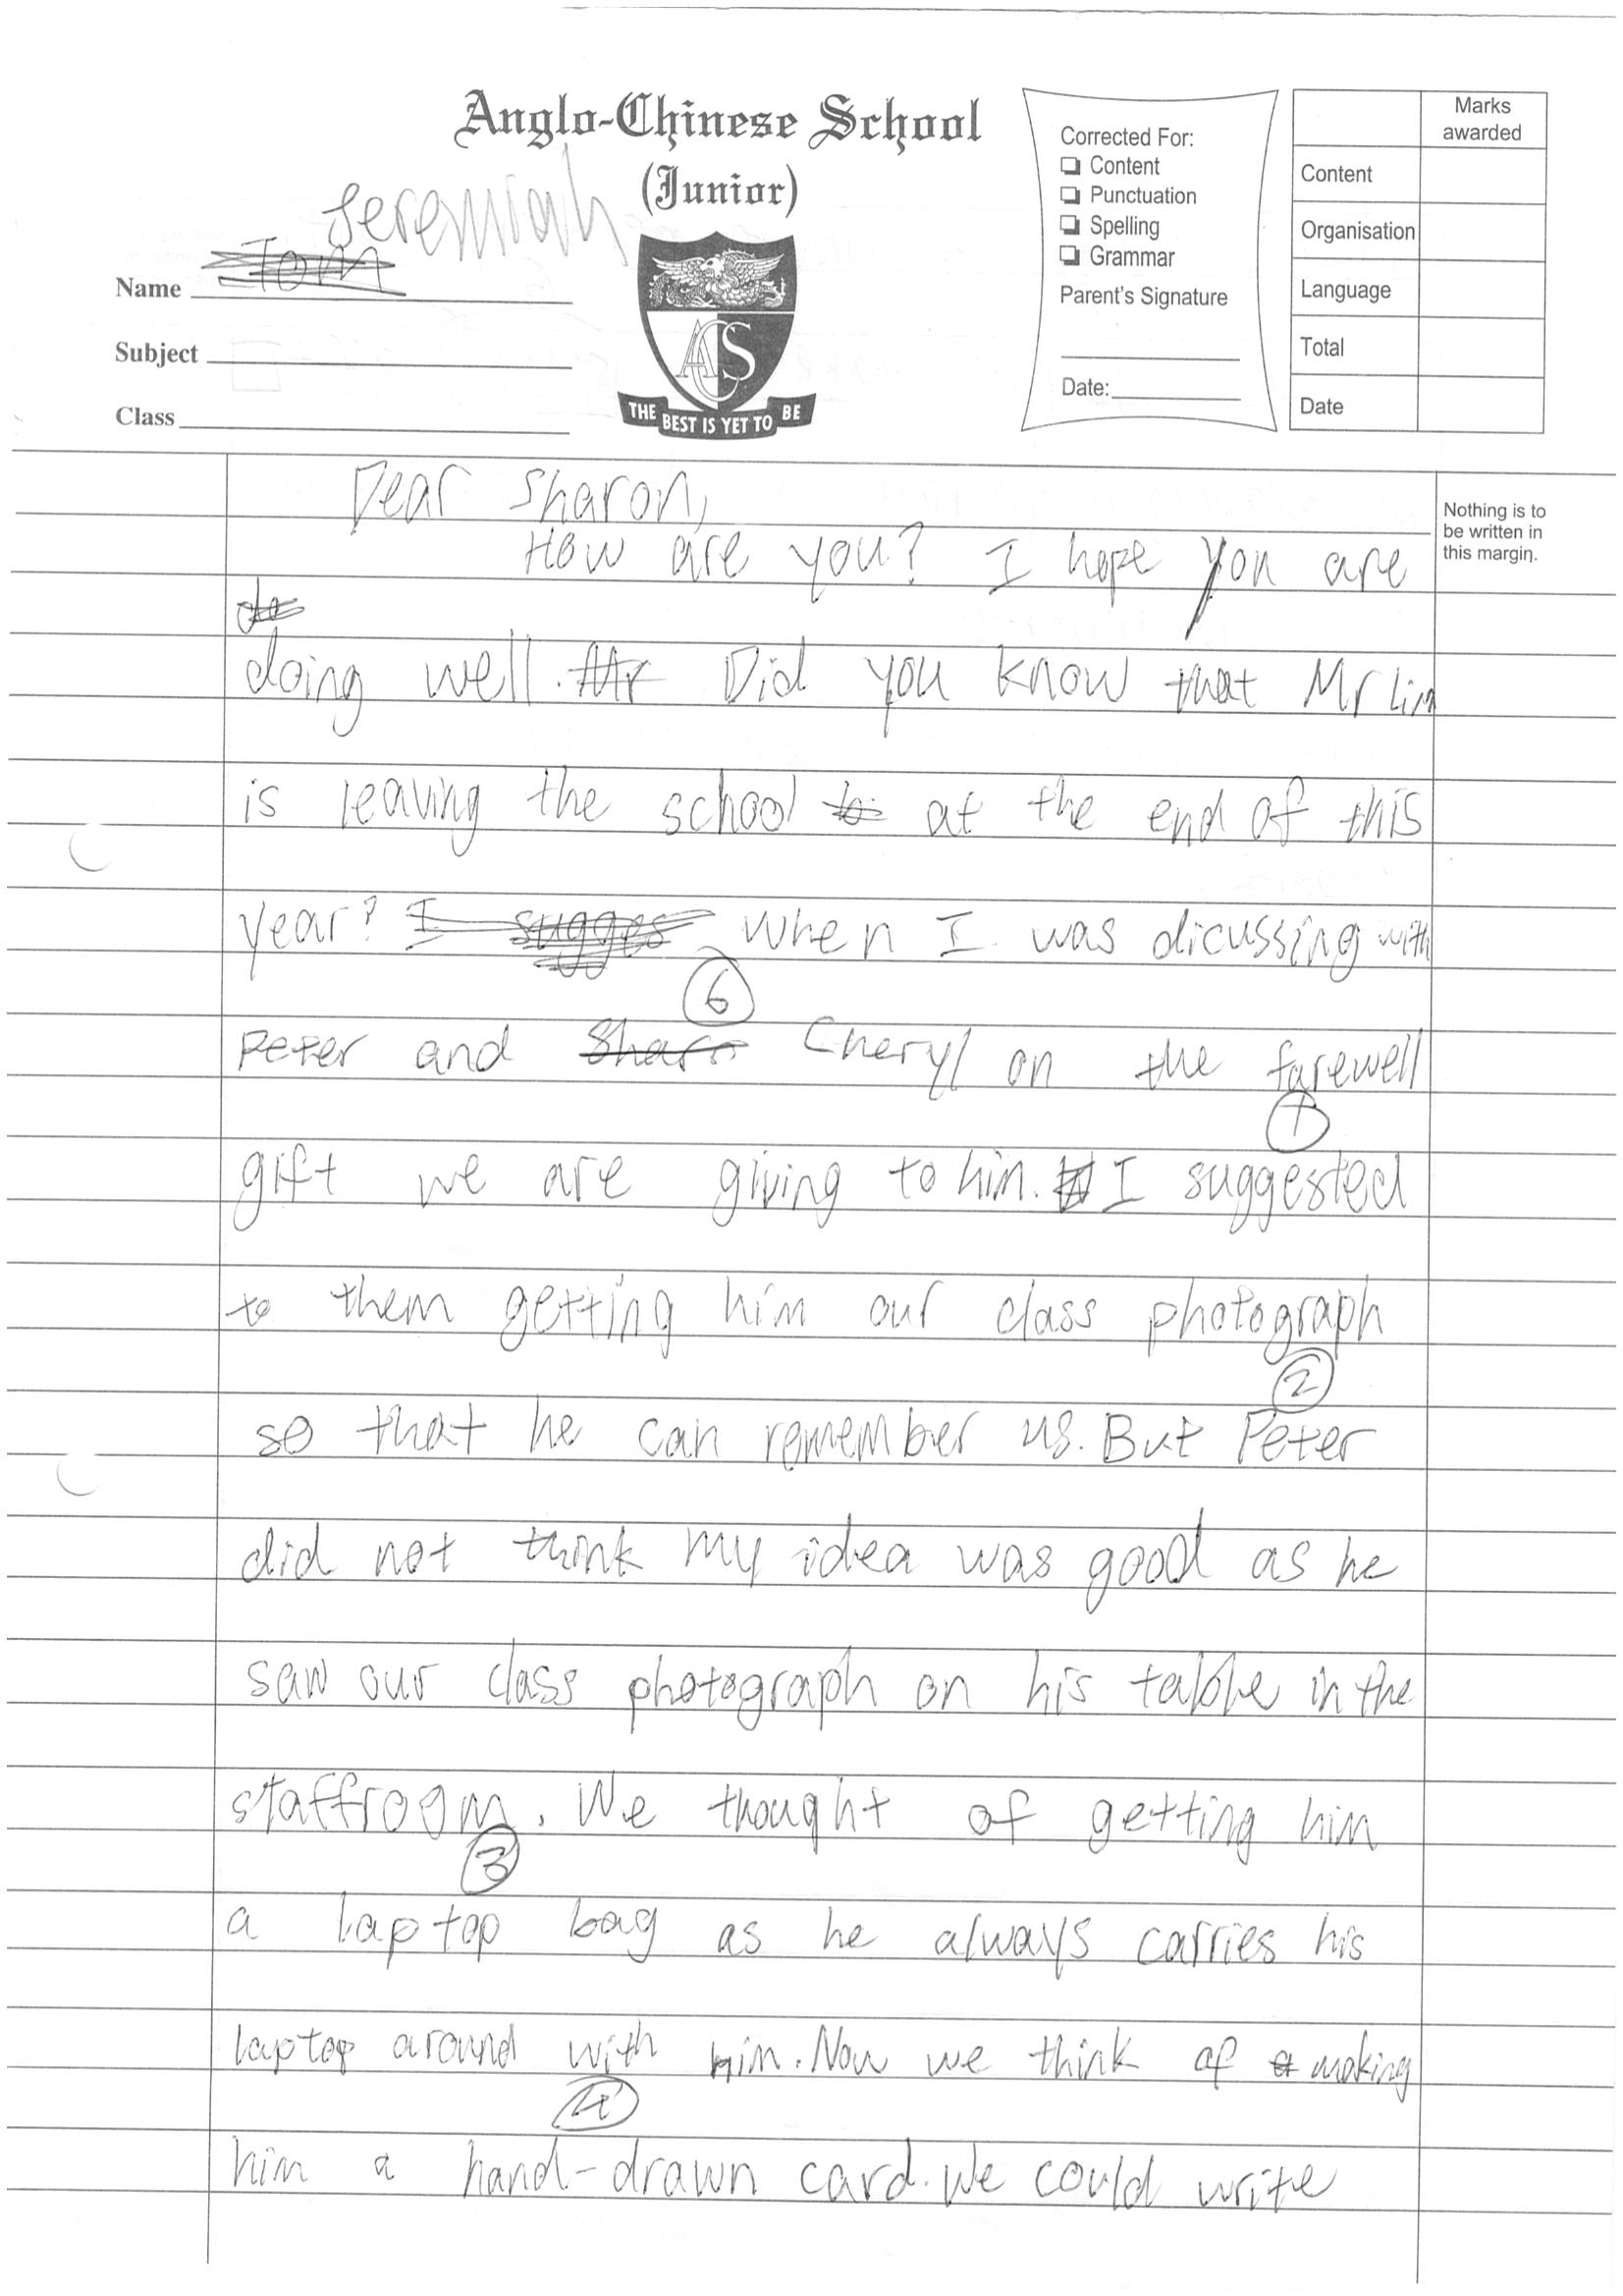 Anglo-Chinese School
(Junior)
Jeremiah
Name Tom
Subject
Class
ACS
THE BEST IS YET TO BE
Corrected For:
Content
Punctuation
Spelling
Grammar
Parent's Signature
Date:
Marks awarded
Content
Organisation
Language
Total
Date
Nothing is to
be written in
this margin.
Dear Sharon,
How are you? I hope you are
do
doing well. Mr Did you know that Mr Lim
is leaving the school to at the end of this
year? I sugges When I was dicussing with
6
Peter and Sharo Cheryl on the farewell
1
gift we are giving to him. I suggested
to them getting him our class photograph
2
so that he can remember us. But Peter
did not think my idea was good as he
saw our class photograph on his table in the
staffroom. We thought of getting him
3
a laptop bag as he always carries his
laptop around with him. Now we think of a making
4
him a hand-drawn card. We could write